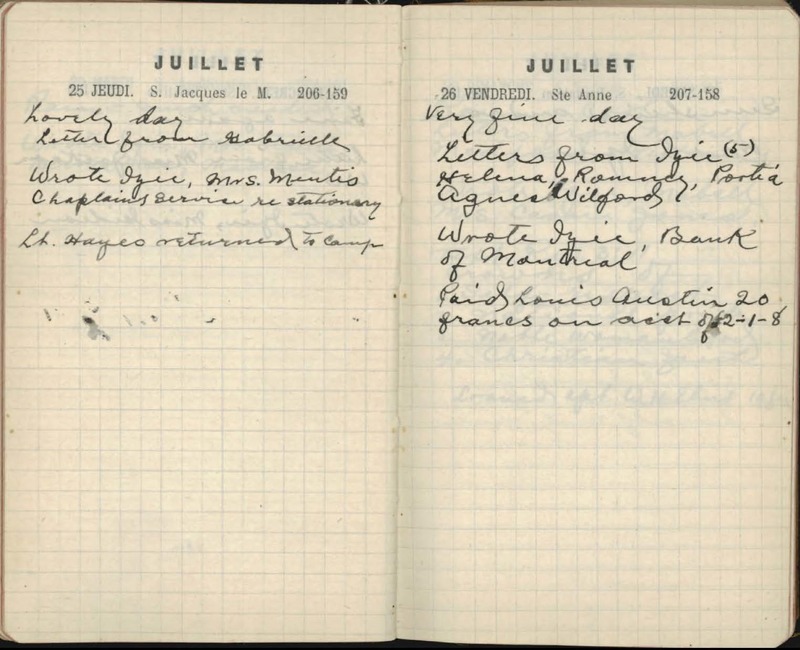 JUILLET
25 JEUDI. S. Jacques le M. 206-159
Lovely day
Letter from Gabrielle
Wrote Izie, Mrs. Mentis
Chaplains Service re stationary
Lt. Hayes returned to camp
JUILLET
26 VENDREDI. Ste Anne 207-158
Very fine day
Letters from Izie (5)
Helena, Romney, Portia
Agnes Wilford
Wrote Izie, Bank
of Montreal
Paid Louis Austin 20
francs on acct of 2-1-8